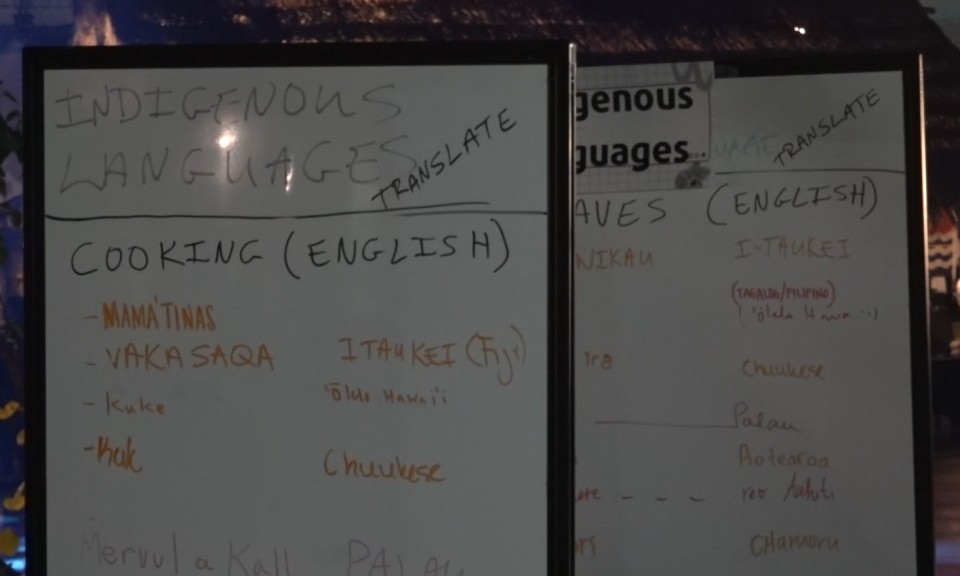 INDIGENOUS
LANGUAGES
TRANSLATE
COOKING (ENGLISH)
- MAMA'TINAS
- VAKASAQA ITAUKEI (Fiji)
- Kuke 'Ōlelo Hawai'i
- Kuk Chuukese
Mervul a Kall PALAU
genous
guages...
UAGE
TRANSLATE
AVES (ENGLISH)
NIKAU I-TAUKEI
(TAGALOG/PILIPINO)
Ira Chuukese
Palau
Aotearoa
ete - - - reo
CHamoru